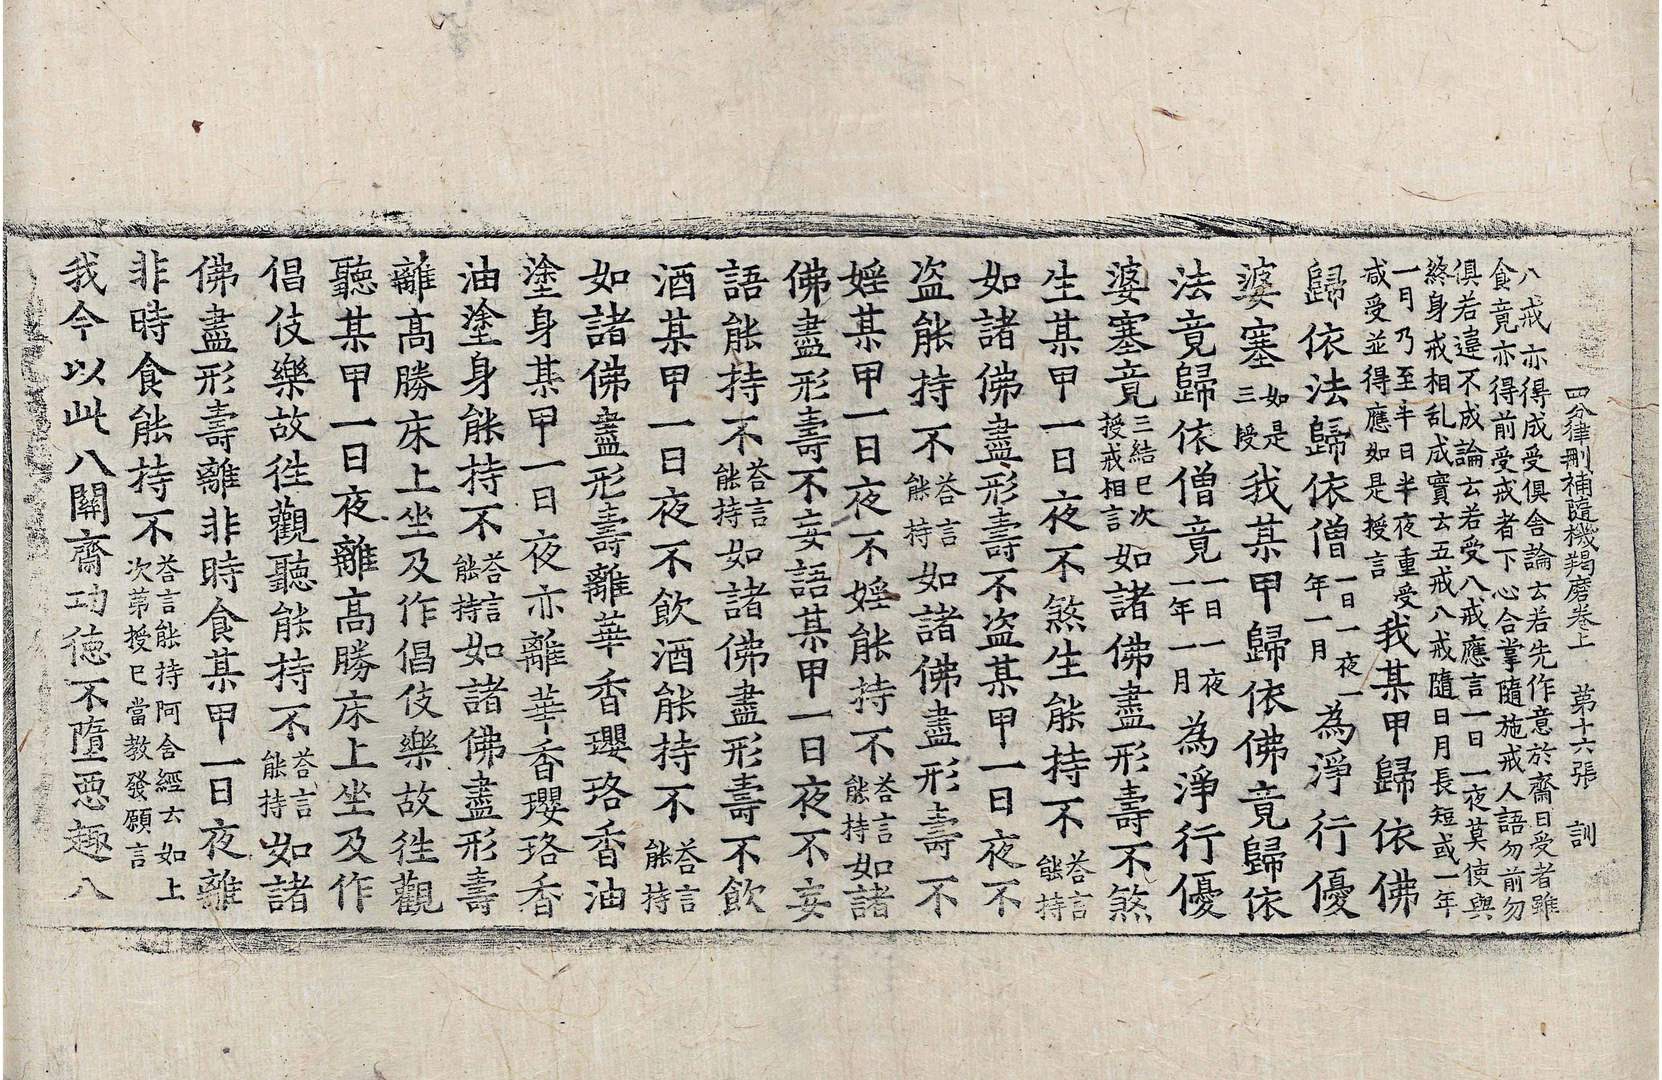 四分律刪補隨機羯磨卷上　第十六張　訓
八戒亦得成受俱舍論云若先作意於齋日受者雖
食竟亦得前受戒者下心合掌隨施戒人語勿前勿
俱若違不成論云若受八戒應言一日一夜莫使與
終身戒相乱成實云五戒八戒隨日月長短或一年
一月乃至半日半夜重受
咸受並得應如是授言我某甲歸依佛
歸依法歸依僧一日一夜一年一月為淨行優
婆塞如是三授我某甲歸依佛竟歸依
法竟歸依僧竟一日一夜一年一月為淨行優
婆塞竟三結已次授戒相言如諸佛盡形壽不煞
生某甲一日夜不煞生能持不荅言能持
如諸佛盡形壽不盗某甲一日夜不
盗能持不荅言能持如諸佛盡形壽不
婬某甲一日夜不婬能持不荅言能持如諸
佛盡形壽不妄語某甲一日夜不妄
語能持不荅言能持如諸佛盡形壽不飲
酒某甲一日夜不飲酒能持不荅言能持
如諸佛盡形壽離華香瓔珞香油
塗身某甲一日夜亦離華香瓔珞香
油塗身能持不荅言能持如諸佛盡形壽
離高勝床上坐及作倡伎樂故徃觀
聽某甲一日夜離高勝床上坐及作
倡伎樂故徃觀聽能持不荅言能持如諸
佛盡形壽離非時食某甲一日夜離
非時食能持不荅言能持阿含經云如上次苐授已當教發願言
我今以此八關齋功徳不墮惡趣八